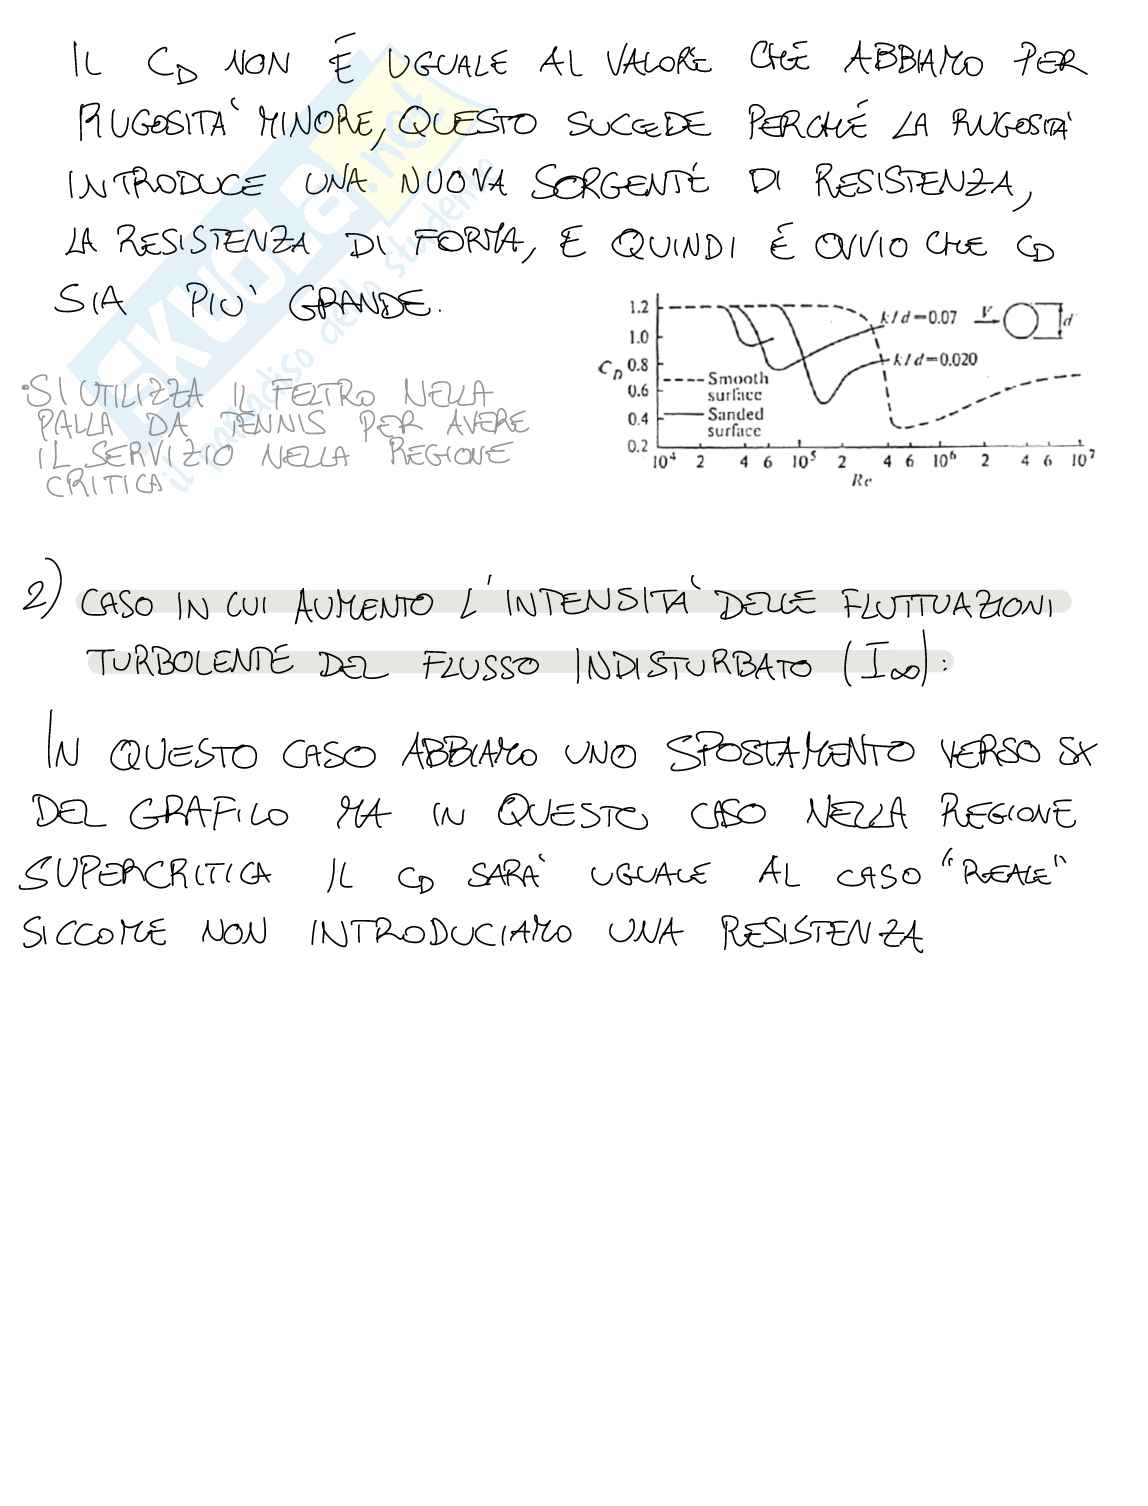 IL CD NON É UGUALE AL VALORE CHE ABBIAMO PER
RUGOSITA' MINORE, QUESTO SUCCEDE PERCHÉ LA RUGOSITA'
INTRODUCE UNA NUOVA SORGENTE DI RESISTENZA,
LA RESISTENZA DI FORMA, E QUINDI É OVVIO CHE CD
SIA PIU' GRANDE.
1.2
1.0
0.8
0.6
0.4
0.2
CD
k/d=0.07
V
d
k/d=0.020
Smooth
surface
Sanded
surface
10⁴ 2 4 6 10⁵ 2 4 6 10⁶ 2 4 6 10⁷
Re
• SI UTILIZZA IL FELTRO NELLA
PALLA DA TENNIS PER AVERE
IL SERVIZIO NELLA REGIONE
CRITICA
2) CASO IN CUI AUMENTO L'INTENSITA' DELLE FLUTTUAZIONI
TURBOLENTE DEL FLUSSO INDISTURBATO (I∞):
IN QUESTO CASO ABBIAMO UNO SPOSTAMENTO VERSO SX
DEL GRAFICO MA IN QUESTO CASO NELLA REGIONE
SUPERCRITICA IL CD SARA' UGUALE AL CASO "REALE"
SICCOME NON INTRODUCIAMO UNA RESISTENZA
SKUOLA.net
il paradiso dello studente